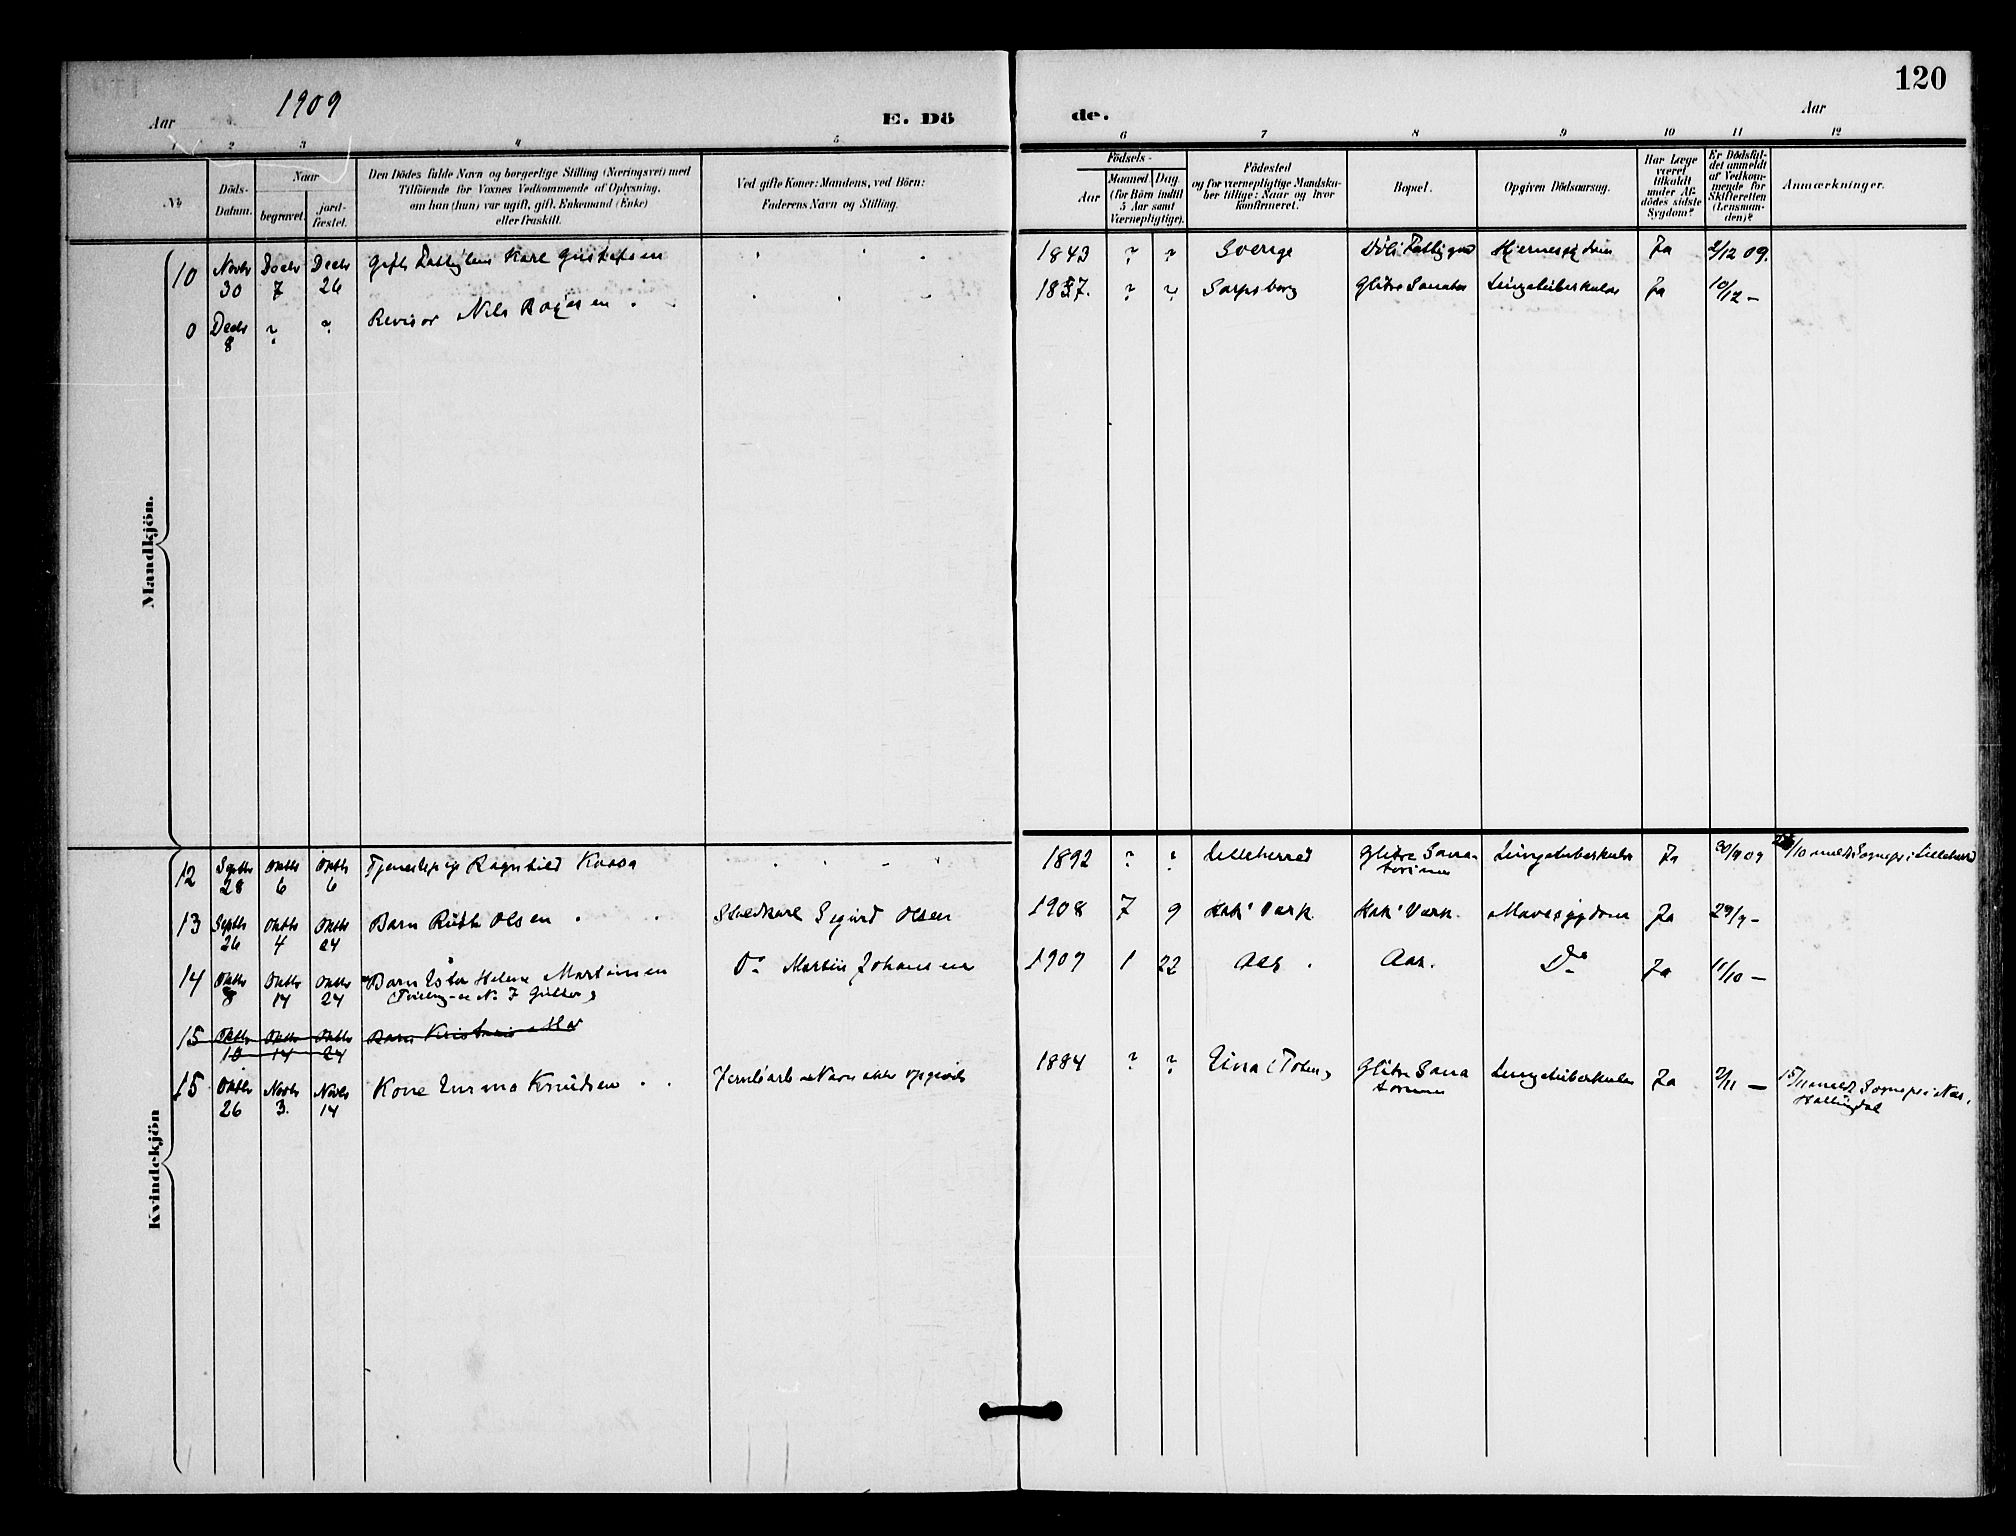 1909
120
Aar
E. Dö
de.
Aar
1 2 3 4 5 6 7 8 9 10 11 12
No
Döds-
Datum.
Naar
begravet.
jord-
fæstet.
Den Dödes fulde Navn og borgerlige Stilling (Næringsvei) med
Tilföiende for Voxnes Vedkommende af Oplysning,
om han (hun) var ugift, gift, Enkemand (Enke)
eller fraskilt.
Ved gifte Koner: Mandens, ved Börn:
Faderens Navn og Stilling.
Födsels-
Aar
Maaned. Dag.
(for Börn indtil
5 Aar samt
Værnepligtige).
Födested
og for værnepligtige Mandska-
ber tillige: Naar og hvor
konfirmeret.
Bopæl.
Opgiven Dödsaarsag.
Har Læge
været
tilkaldt
under Af-
dödes sidste
Sygdom?
Er Dödsfal-
det anmeldt
af Vedkom-
mende for
Skifteretten
(Lensman-
den)?
Anmærkninger.
Mandkjön.
10 Novbr 30 Decbr 7 Decbr 26 Gift Karl Gustafsen 1843 ? ? Sverige Hjernesygdom Ja 2/12 09.
0 Decbr 8 ? ? Revisor Nils 1857. ? ? Sarpsborg Glitre Sanator Lungetuberkulos Ja 10/12 –
Kvindekjön
12 Septbr 28 Oktbr 6 Oktbr 6 Tjenestepige Ragnhild Kaasa 1892 ? ? Lilleherred Glitre Sana-
torium Lungetuberkulos Ja 30/9 09 /10 meldt Sognepr i Lilleherred
13 Septbr 26 Oktbr 4 Oktbr 24 Barn Ruth Olsen Sigurd Olsen 1908 7 9 Hak. Værk Hak. Værk. Mavesygdom Ja 29/9 –
14 Oktbr 8 Oktbr 14 Oktbr 24 Barn Ester Helene Martinsen Do Martin Johansen 1909 1 22 Aas. Aas. Do Ja 11/10 –
(Tvilling – se No 7
15 Oktbr 10 Oktbr 14 Oktbr 24 Barn
15 Oktbr 26 Novbr 3. Novbr 14 Kone Emma Knudsen Navn ikke opgivet 1884 ? ? Eina (Toten) Glitre Sana
torium Lungetuberkulos Ja 2/11 – 15/11 meldt Sognepr i Nes,
Hallingdal